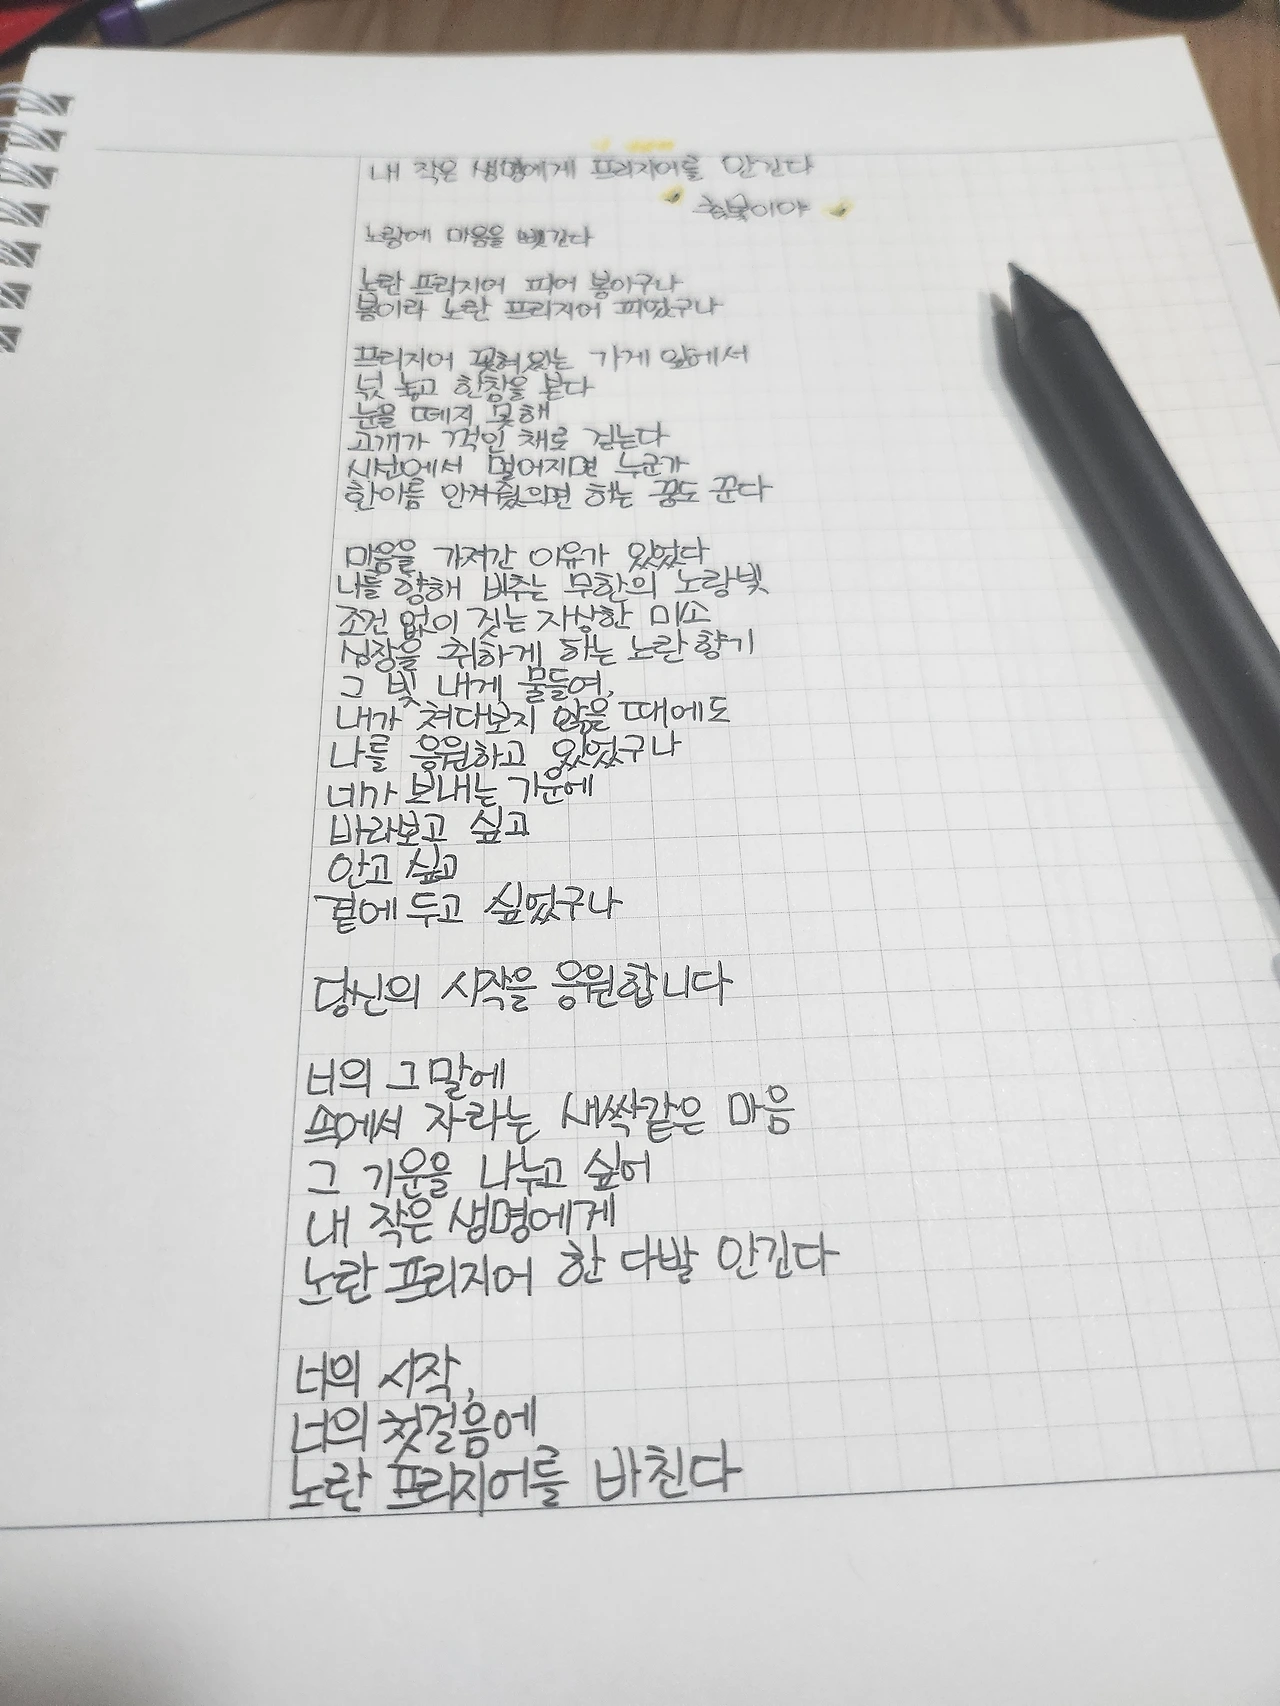 내 작은 생명에게 프리지어를 안긴다
노랑에 마음을 뺏긴다
노란 프리지어 피어 봄이구나
봄이라 노란 프리지어 피었구나
프리지어 꽂혀있는 가게 앞에서
넋 놓고 한참을 본다
눈을 떼지 못해
고개가 꺾인 채로 걷는다
시선에서 멀어지면 누군가
한아름 안겨줬으면 하는 꿈도 꾼다
마음을 가져간 이유가 있었다
나를 향해 비추는 무한의 노랑빛
조건 없이 짓는 자상한 미소
심장을 취하게 하는 노란 향기
그 빛 내게 물들여,
내가 쳐다보지 않을 때에도
나를 응원하고 있었구나
네가 보내는 기운에
바라보고 싶고
안고 싶고
곁에 두고 싶었구나
당신의 시작을 응원합니다
너의 그 말에
속에서 자라는 새싹같은 마음
그 기운을 나누고 싶어
내 작은 생명에게
노란 프리지어 한 다발 안긴다
너의 시작,
너의 첫걸음에
노란 프리지어를 바친다